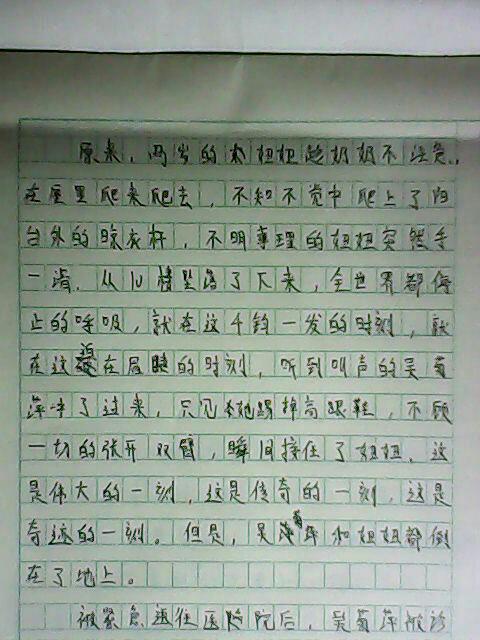 原来，两岁的小妞妞趁奶奶不注意，
在屋里爬来爬去，不知不觉中爬上了阳
台外的晾衣杆，不明事理的妞妞突然手
一滑，从10楼坠落了下来，全世界都停
止的呼吸，就在这千钧一发的时刻，就
在这迫在眉睫的时刻，听到叫声的吴菊
萍冲了过来，只见她踢掉高跟鞋，不顾
一切的张开双臂，瞬间接住了妞妞，这
是伟大的一刻，这是传奇的一刻，这是
奇迹的一刻。但是，吴菊萍和妞妞都倒
在了地上。
被紧急送往医院后，吴菊萍被诊